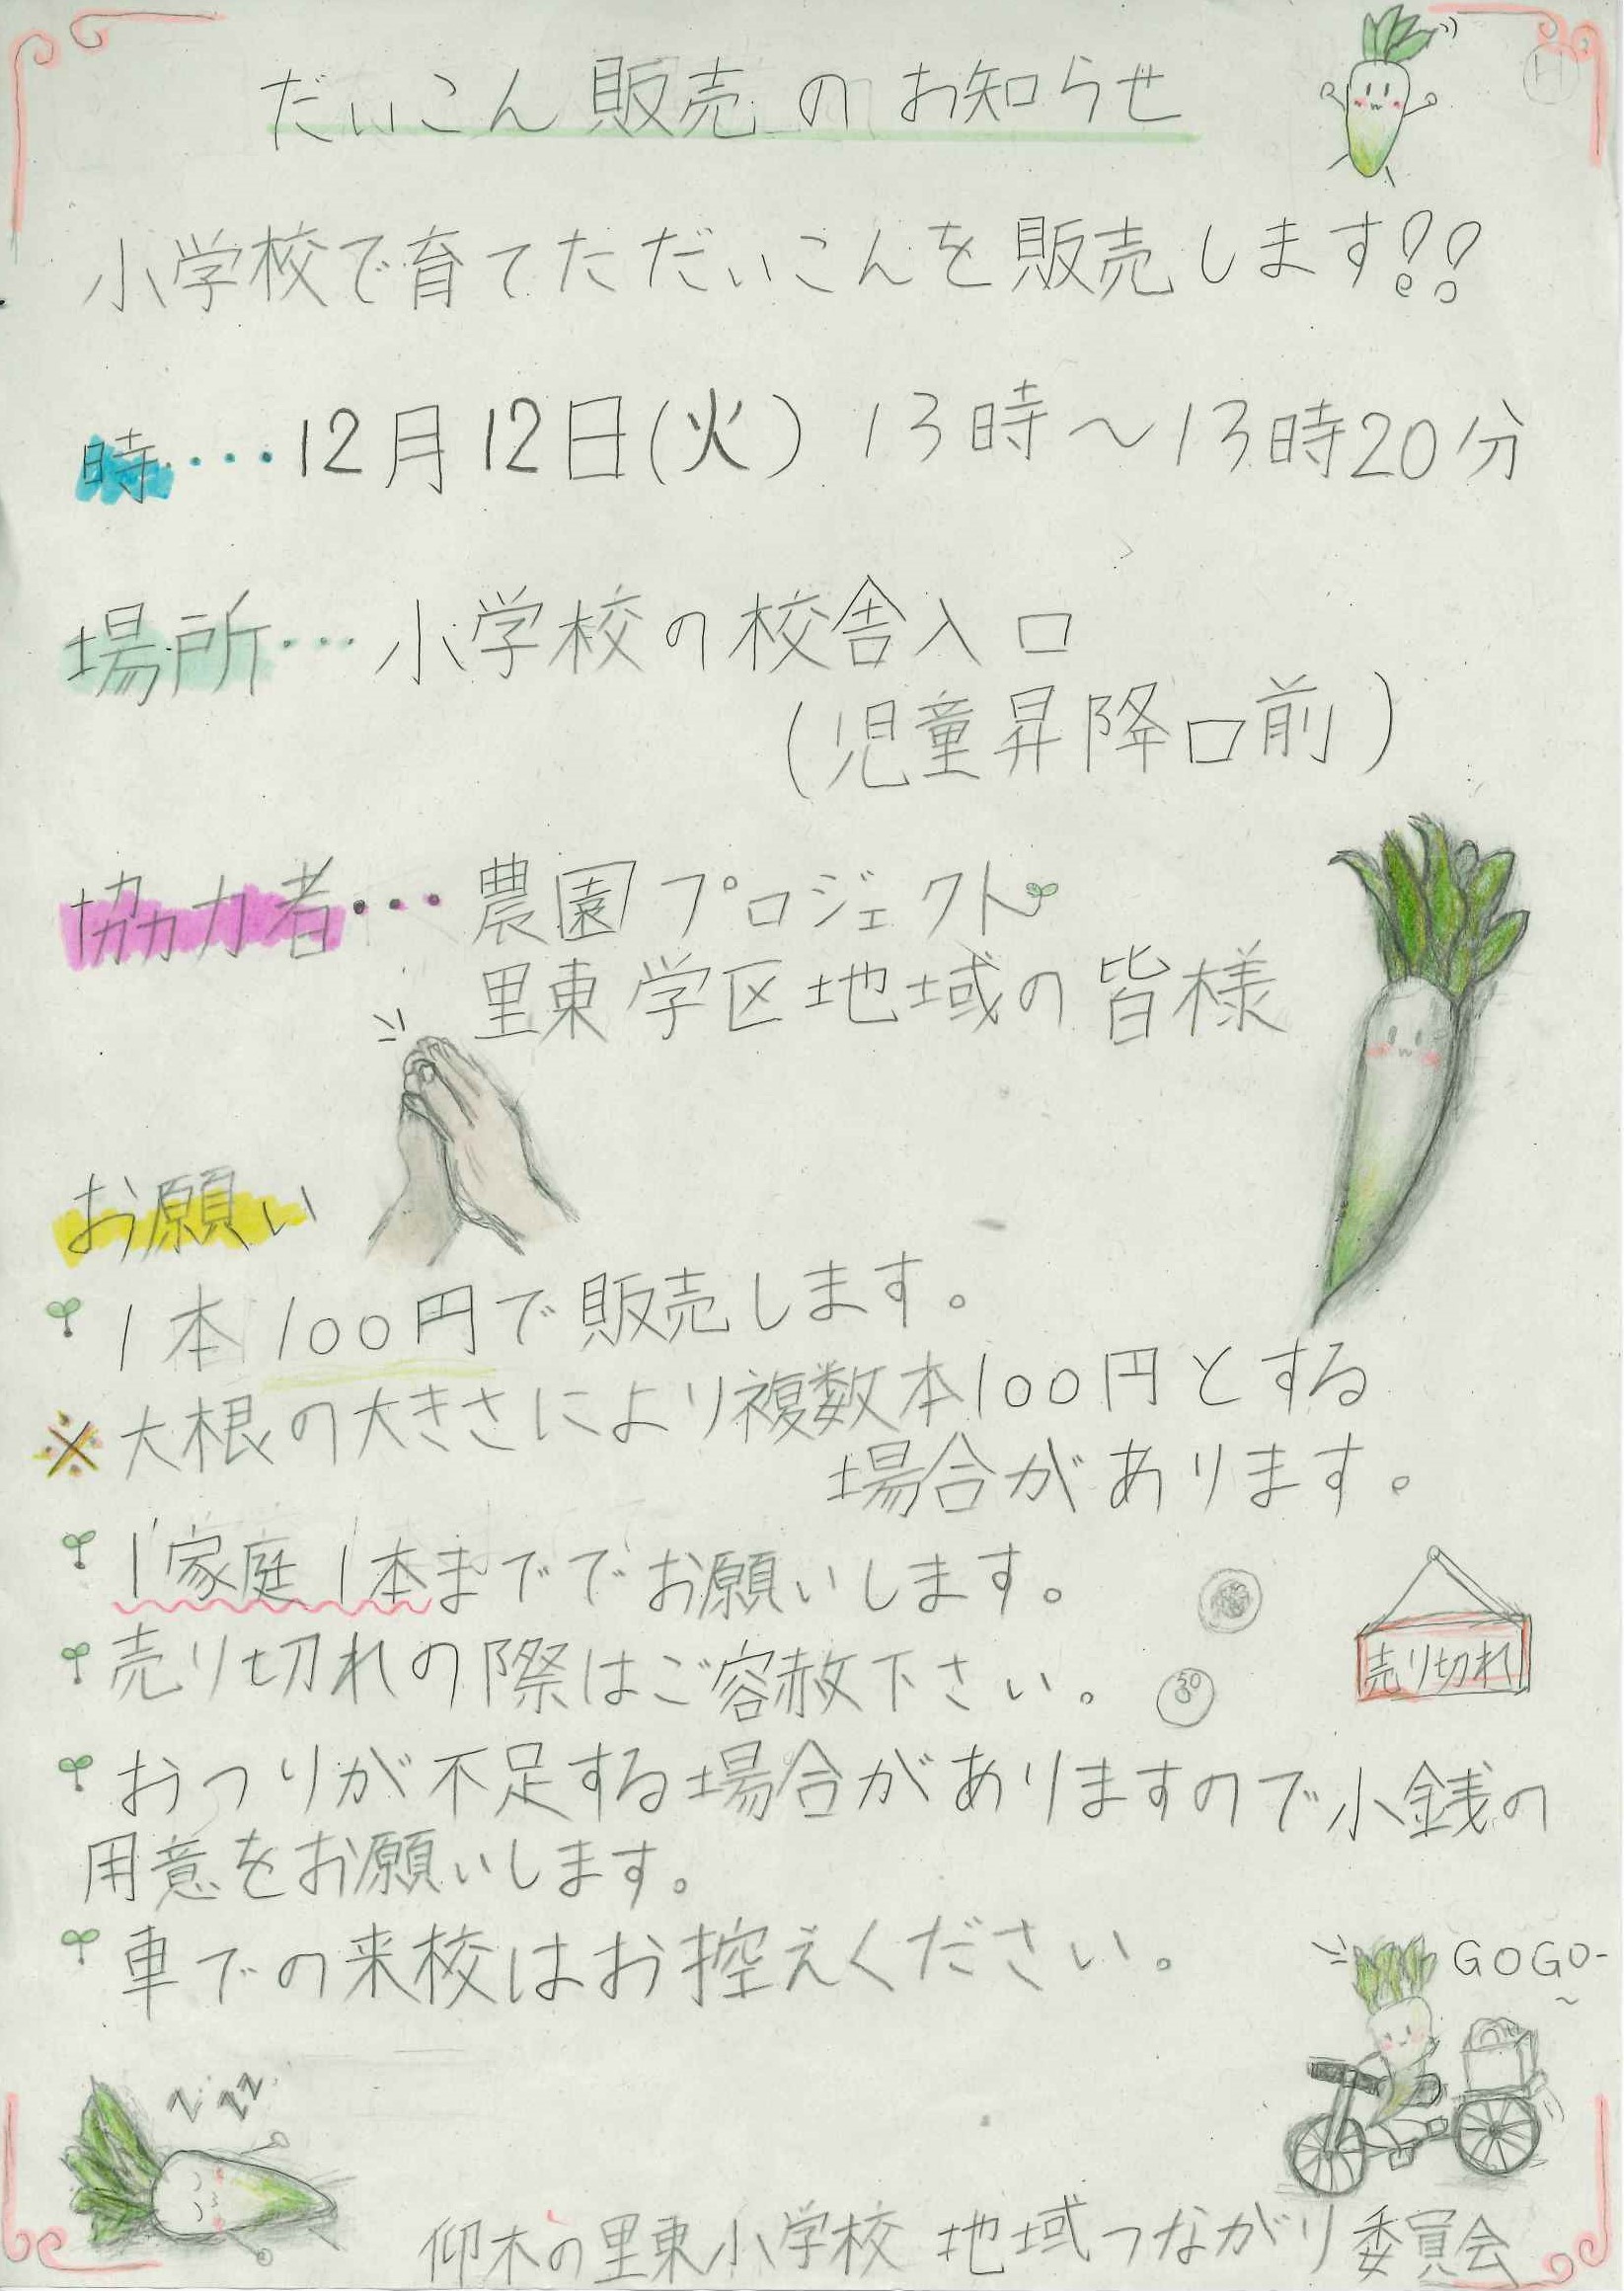 だいこん販売のお知らせ
小学校で育てただいこんを販売します!!
時・・・12月12日(火) 13時～13時20分
場所・・・小学校の校舎入口
(児童昇降口前)
協力者・・・農園プロジェクト
里東学区地域の皆様
お願い
1本100円で販売します。
※大根の大きさにより複数本100円とする
場合があります。
1家庭1本まででお願いします。
売り切れの際はご容赦下さい。
50
売り切れ
おつりが不足する場合がありますので小銭の
用意をお願いします。
車での来校はお控えください。
GOGO-~
z zz
仰木の里東小学校 地域つながり委員会